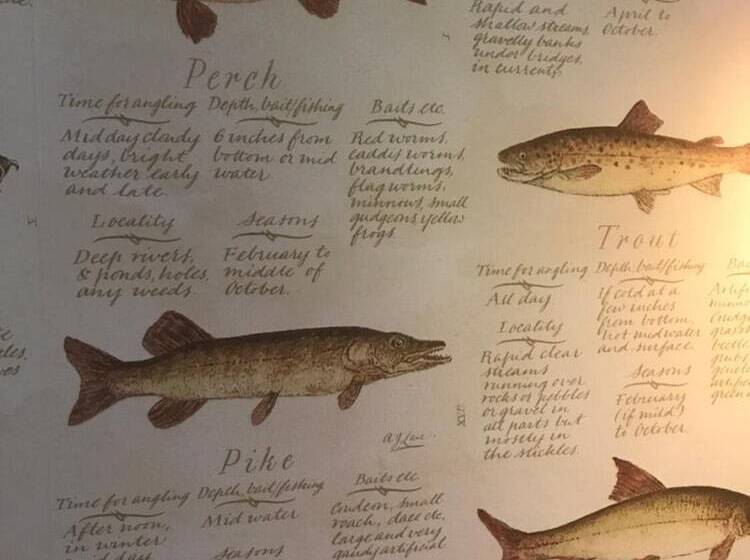 Perch
Time for angling
Mid day cloudy
days, bright
weather early
and late.
Depth, bait/fishing
6 inches from
bottom or mid
water.
Baits etc.
Red worms,
caddis worms,
brandlings,
flag worms,
minnows, small
gudgeons yellow
frogs
Locality
Deep rivers,
& ponds, holes,
any weeds.
Seasons
February to
middle of
October.
A J Lane
Pike
Time for angling
After noon,
in winter
days
Depth, bait/fishing
Mid water
Seasons
Baits etc
Gudeon, small
roach, dace etc,
large and very
gaudy artificial
Rapid and
shallow streams
gravelly banks
under bridges,
in currents,
April to
October.
Trout
Time for angling
All day.
Locality
Rapid clear
streams
running over
rocks or pebbles
or gravel in
all parts but
mostly in
the stickles.
Depth, bait/fishing
If cold at a
few inches
from bottom,
hot midwater
and surface.
Seasons
February
(if mild)
to October.